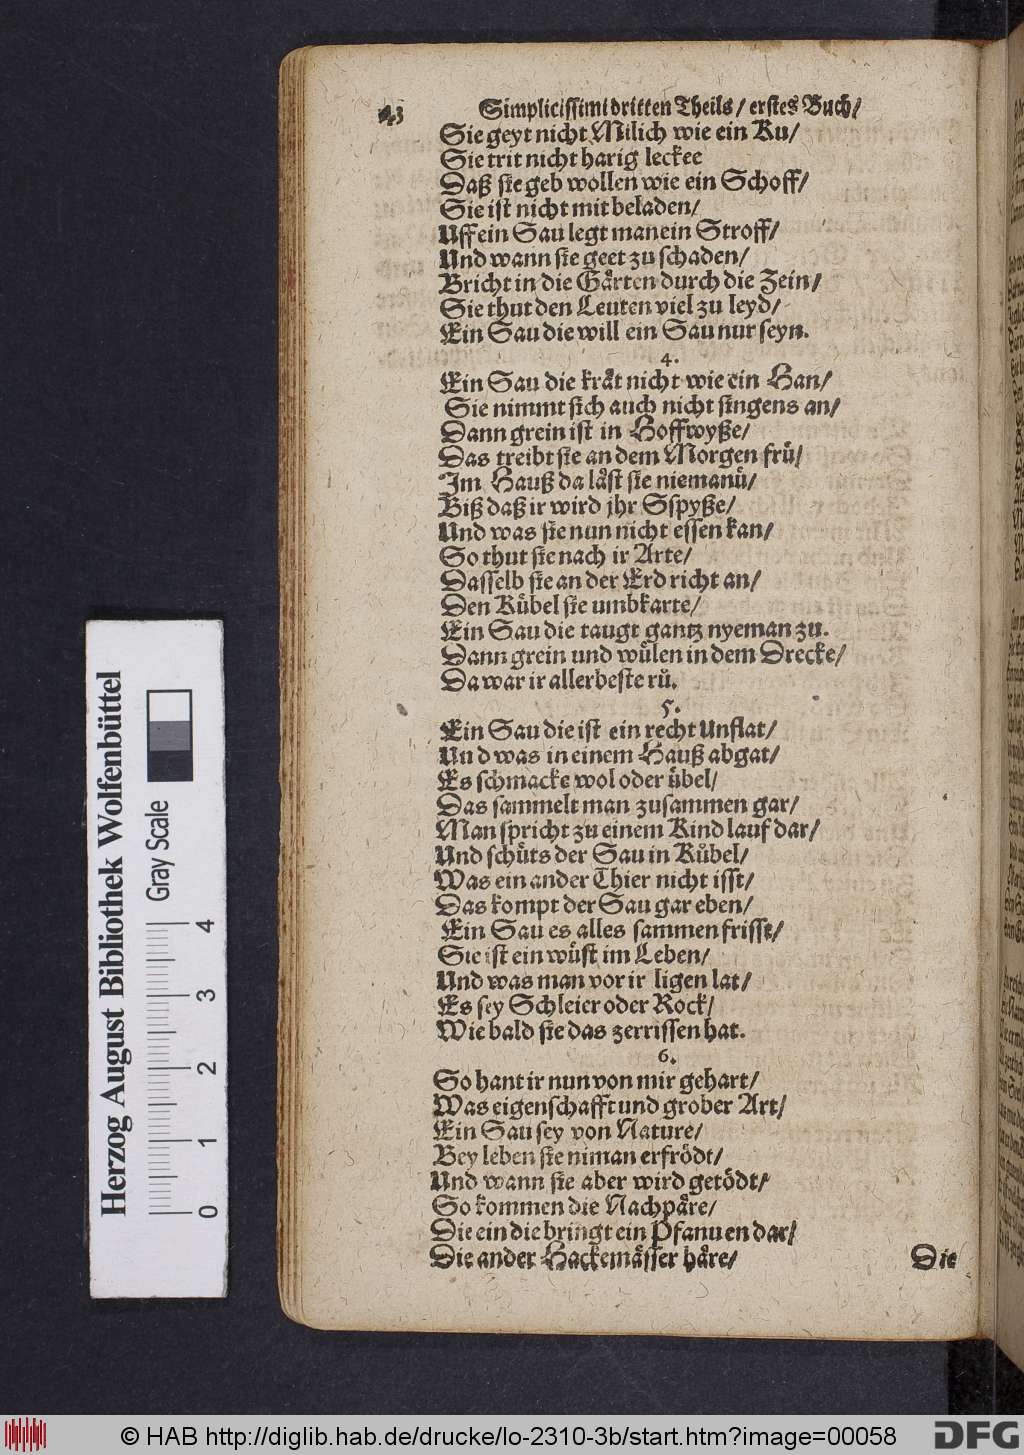 Simplicissimi dritten Theils / erstes Buch /
Sie geyt nicht Milich wie ein Ku /
Sie trit nicht harig leckee
Daß sie geb wollen wie ein Schoff /
Sie ist nicht mit beladen /
Uff ein Sau legt man ein Stroff /
Und wann sie geet zu schaden /
Bricht in die Gaͤrten durch die Zein /
Sie thut den Leuten viel zu leyd /
Ein Sau die will ein Sau nur seyn.
4.
Ein Sau die kraͤt nicht wie ein Han /
Sie nimmt sich auch nicht singens an /
Dann grein ist in Hoffwyße /
Das treibt sie an dem Morgen fruͤ /
Im Hauß da laͤst sie niemanuͤ /
Biß daß ir wird jhr Sspyße /
Und was sie nun nicht essen kan /
So thut sie nach ir Arte /
Dasselb sie an der Erd richt an /
Den Kuͤbel sie umbkarte /
Ein Sau die taugt gantz nyeman zu.
Dann grein und wuͤlen in dem Drecke /
Da war ir allerbeste ruͤ.
5.
Ein Sau die ist ein recht Unflat /
Uu d was in einem Hauß abgat /
Es schmacke wol oder uͤbel /
Das sammelt man zusammen gar /
Man spricht zu einem Kind lauf dar /
Und schuͤts der Sau in Kuͤbel /
Was ein ander Thier nicht isst /
Das kompt der Sau gar eben /
Ein Sau es alles sammen frisst /
Sie ist ein wuͤst im Leben /
Und was man vor ir ligen lat /
Es sey Schleier oder Rock /
Wie bald sie das zerrissen hat.
6.
So hant ir nun von mir gehart /
Was eigenschafft und grober Art /
Ein Sau sey von Nature /
Bey leben sie niman erfroͤdt /
Und wann sie aber wird getoͤdt /
So kommen die Nachpaͤre /
Die ein die bringt ein Pfanuen dar /
Die ander Hackemaͤsser haͤre /
Die
Herzog August Bibliothek Wolfenbüttel
Gray Scale
0 1 2 3 4
© HAB http://diglib.hab.de/drucke/lo-2310-3b/start.htm?image=00058
DFG